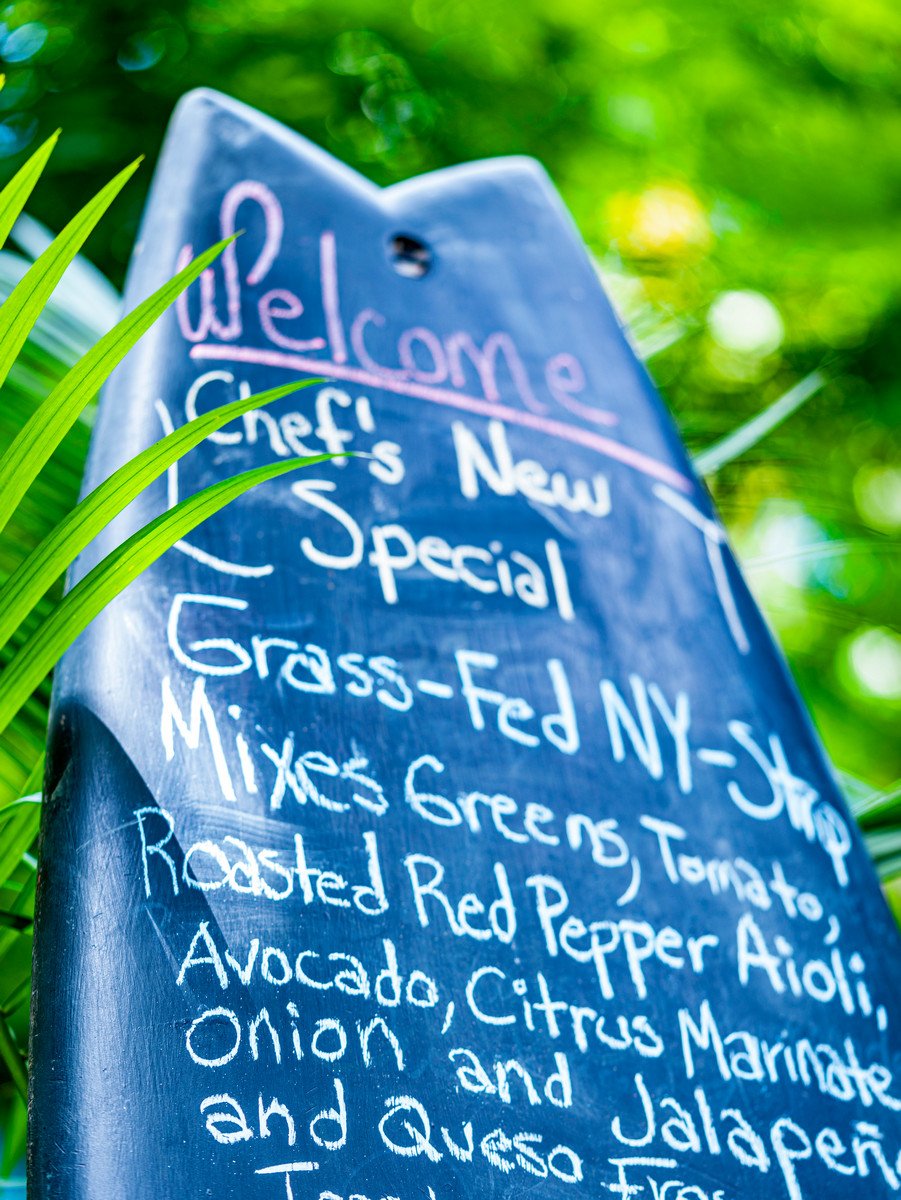 Welcome
Chef's New
Special
Grass-Fed NY-Strip
Mixes Greens, Tomato,
Roasted Red Pepper Aioli,
Avocado, Citrus Marinate
Onion and Jalapeñ
and Queso